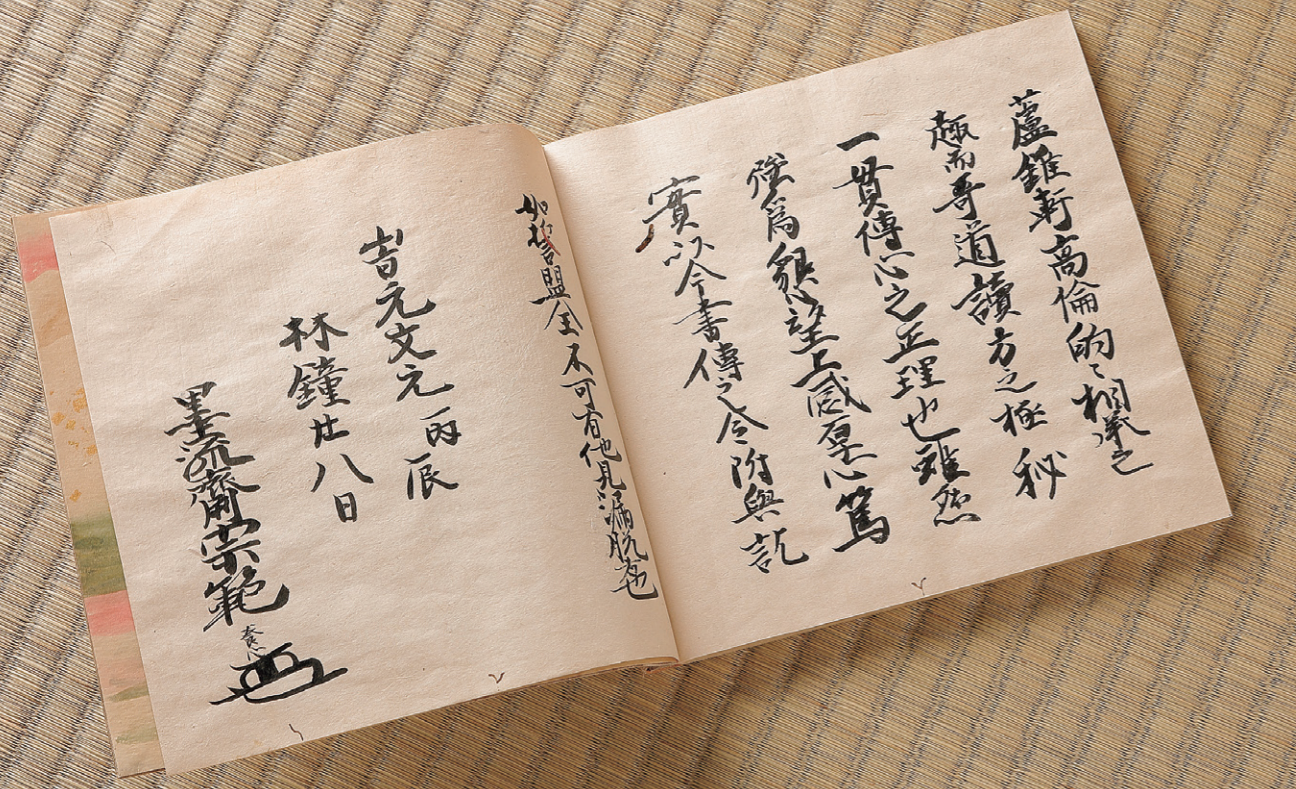 蘆錐軒高倫的〻相承之
趣而哥道讀方之極秘
一貫傳心之正理也雖然
強爲懇望上感厚心篤
實以今書傳之令附與訖
如誓盟全不可有他見漏脱者也
元文元丙辰
林鐘廿八日
墨流齋宗範